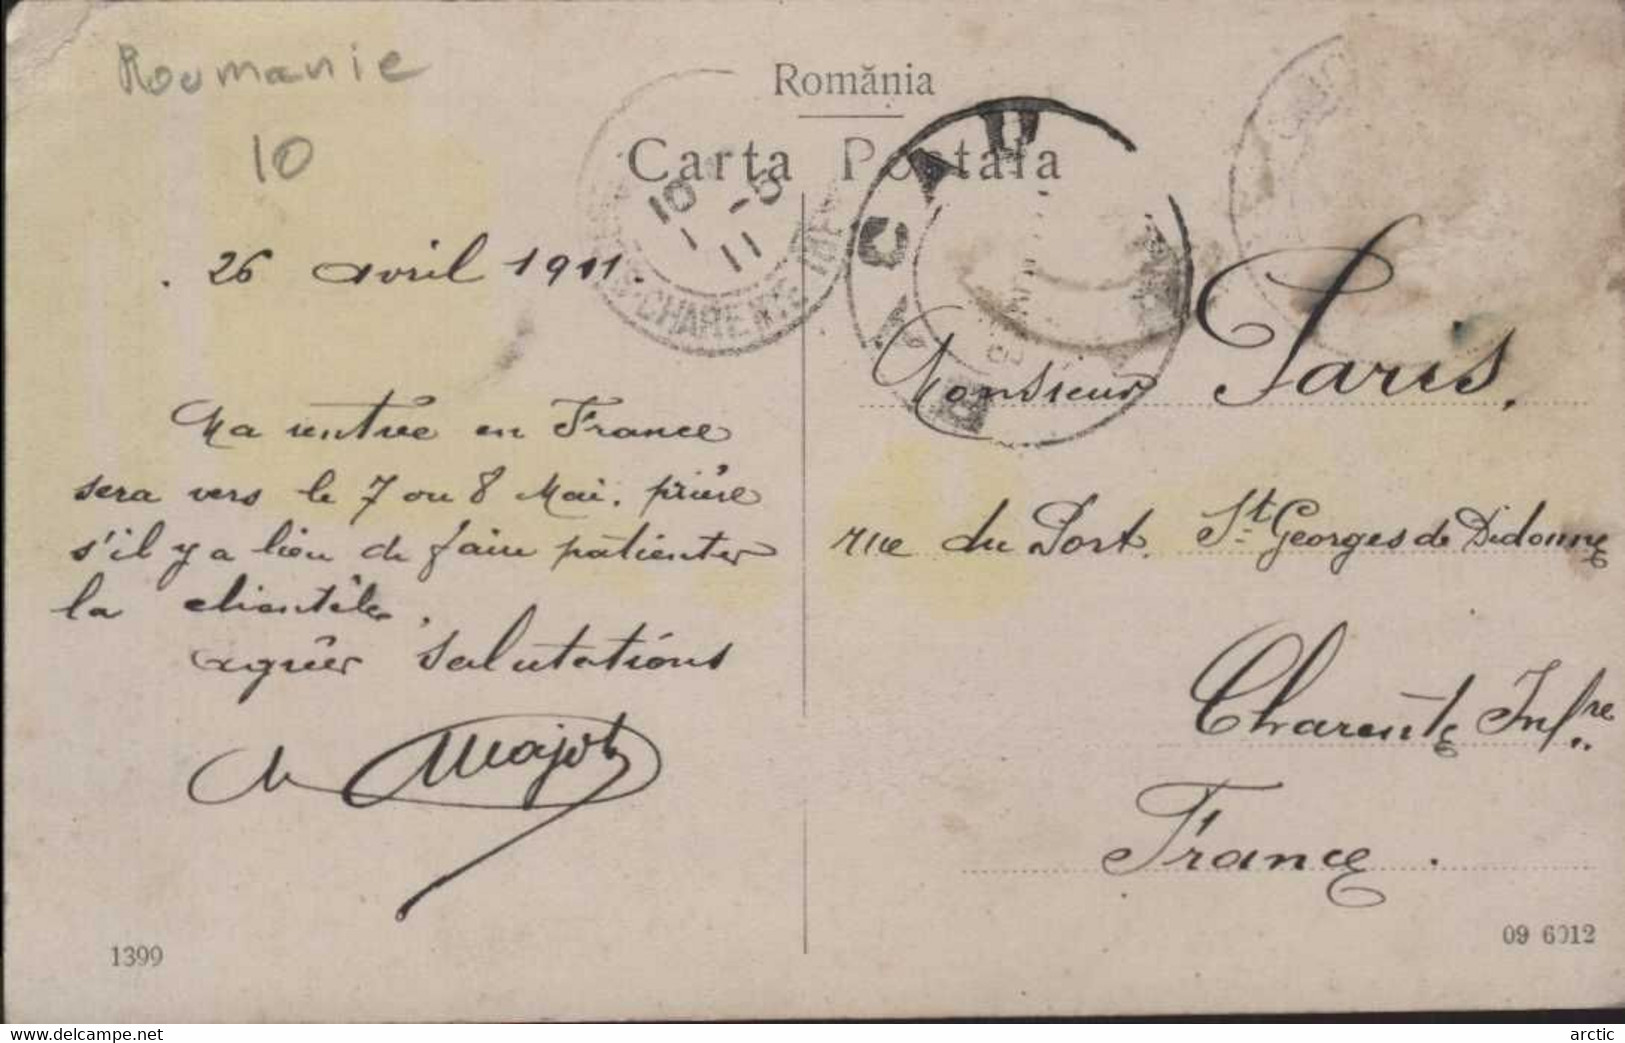 Roumanie
10
România
Carta Postala
10
1-5
11
CHARENTE INF
. 26 avril 1911.
Ma rentrée en France
sera vers le 7 ou 8 Mai. prière
s'il y a lieu de faire patienter
la clientèle.
agréer salutations
Majot
Monsieur Paris.
rue du Port. St Georges de Didonne
Charente Infre
France.
1399
09 6012
https://www.delcampe.net
arctic